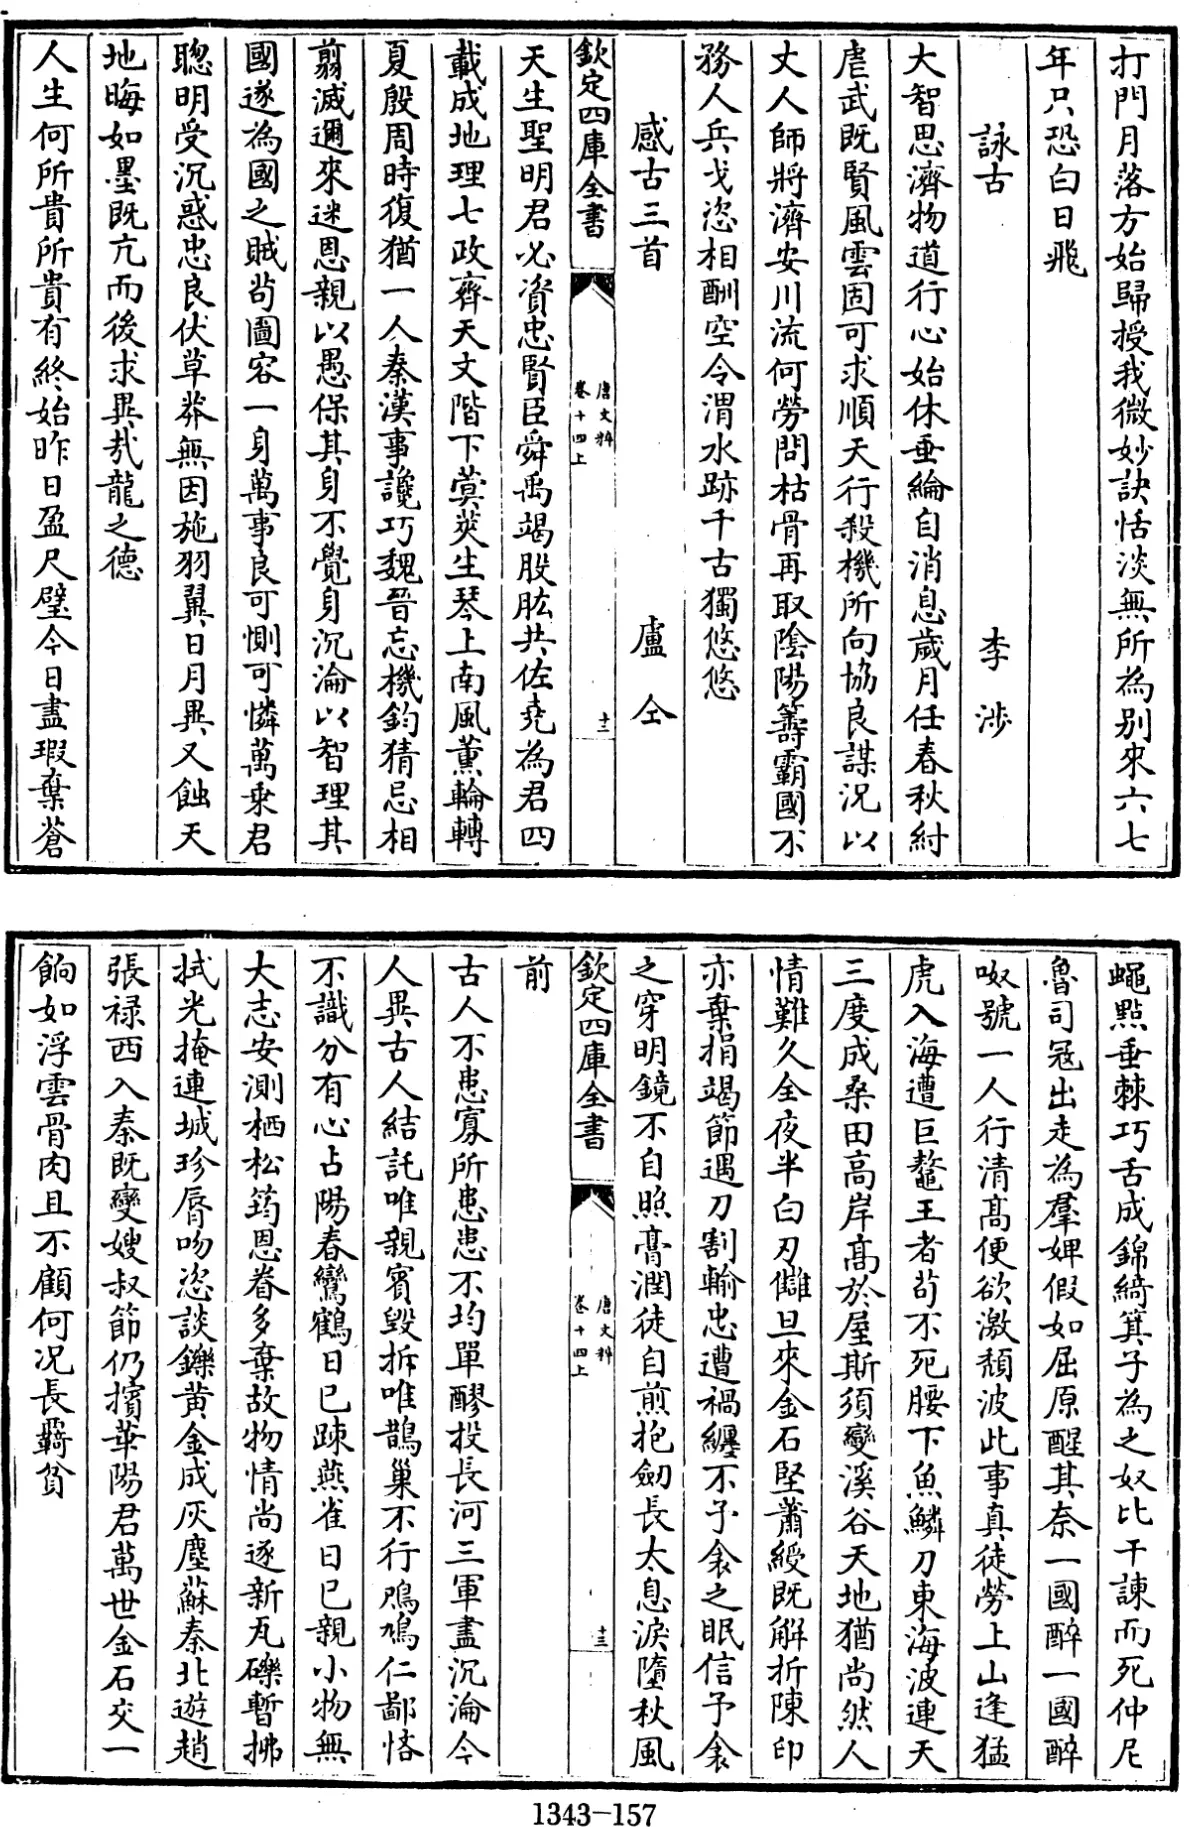 打門月落方始歸授我微妙訣恬淡無所為别來六七
年只恐白日飛
詠古 李涉
大智思濟物道行心始休垂綸自消息歲月任春秋紂
虐武既賢風雲固可求順天行殺機所向協良謀況以
丈人師將濟安川流何勞問枯骨再取陰陽籌霸國不
務人兵戈恣相酬空令渭水跡千古獨悠悠
感古三首 盧仝
欽定四庫全書
唐文粹
卷十四上
十二
天生聖明君必資忠賢臣舜禹竭股肱共佐堯為君四
載成地理七政齊天文階下蓂莢生琴上南風薰輪轉
夏殷周時復猶一人秦漢事讒巧魏晉忘機鈞猜忌相
翦滅邇來迷恩親以愚保其身不覺身沉淪以智理其
國遂為國之賊苟圖容一身萬事良可惻可憐萬乘君
聰明受沉惑忠良伏草莽無因施羽翼日月異又蝕天
地晦如墨既亢而後求異哉龍之德
人生何所貴所貴有終始昨日盈尺璧今日盡瑕棄蒼
蠅點垂棘巧舌成錦綺箕子為之奴比干諫而死仲尼
魯司冦出走為羣婢假如屈原醒其奈一國醉一國醉
呶號一人行清髙便欲激頽波此事真徒勞上山逢猛
虎入海遭巨鼇王者苟不死腰下魚鱗刀東海波連天
三度成桑田高岸髙於屋斯須變溪谷天地猶尚然人
情難久全夜半白刃讎旦來金石堅蕭綬既解折陳印
亦棄捐竭節遇刀割輸忠遭禍纏不予衾之眠信予衾
之穿明鏡不自照膏潤徒自煎抱劒長太息淚墮秋風
欽定四庫全書
唐文粹
卷十四上
十三
前
古人不患寡所患患不均單醪投長河三軍盡沉淪今
人異古人結託唯親賓毀拆唯鵲巢不行鳲鳩仁鄙悋
不識分有心占陽春鸞鶴日已疎燕雀日已親小物無
大志安測栖松筠恩眷多棄故物情尚逐新瓦礫暫拂
拭光掩連城珍脣吻恣談鑠黄金成灰塵蘇秦北遊趙
張禄西入秦既變嫂叔節仍擯華陽君萬世金石交一
餉如浮雲骨肉且不顧何况長羇貧
1343-157